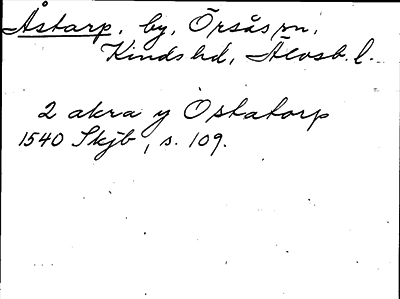 Åstarp, by, Örsås sn,
Kinds hd, Älvsb. l.
2 akra y Ostatorp
1540 Skjb, s. 109.